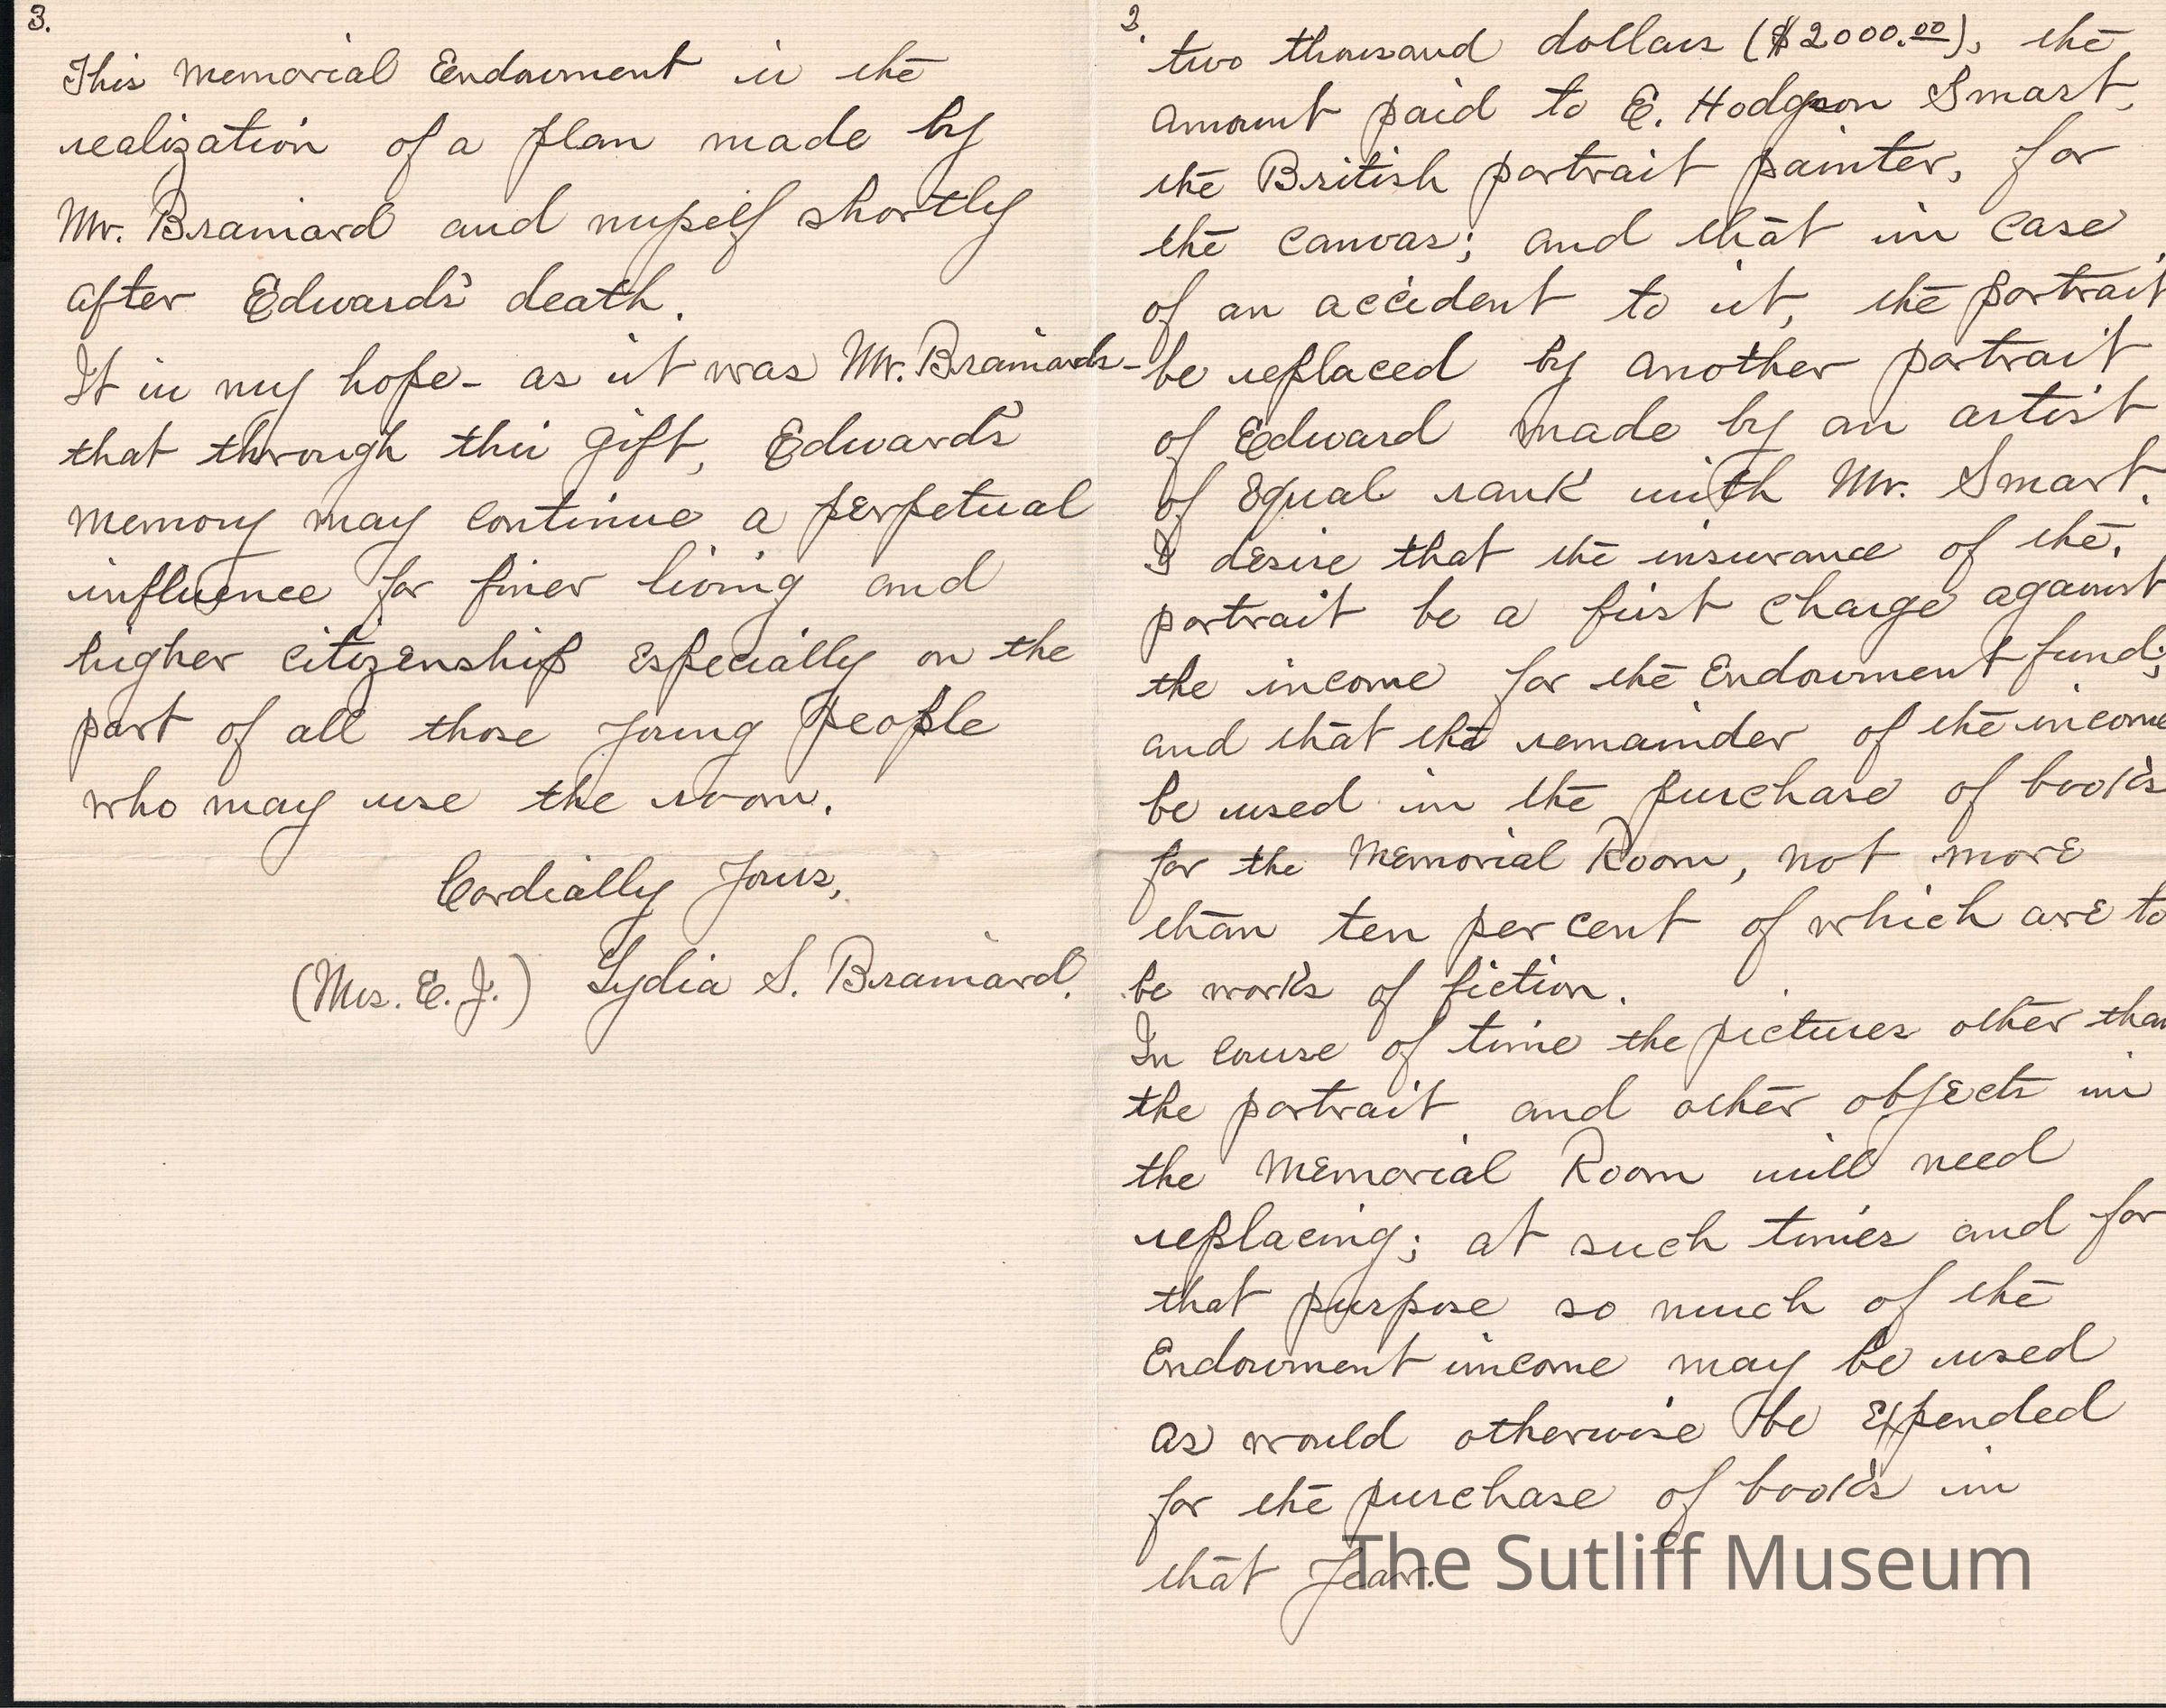 2.
two thousand dollars ($2000.00), the
amount paid to E. Hodgson Smart,
the British portrait painter, for
the canvas; and that in case
of an accident to it, the portrait
be replaced by another portrait
of Edward made by an artist
of equal rank with Mr. Smart.
I desire that the insurance of the
portrait be a first charge against
the income for the Endowment fund;
and that the remainder of the income
be used in the purchase of books
for the Memorial Room, not more
than ten per cent of which are to
be works of fiction.
In course of time the pictures other than
the portrait and other objects in
the Memorial Room will need
replacing; at such times and for
that purpose so much of the
Endowment income may be used
as would otherwise be expended
for the purchase of books in
that year.
3.
This Memorial Endowment is the
realization of a plan made by
Mr. Brainard and myself shortly
after Edward's death.
It is my hope - as it was Mr. Brainard's -
that through this gift, Edward's
memory may continue a perpetual
influence for finer living and
higher citizenship especially on the
part of all those young people
who may use the room.
Cordially yours,
(Mrs. E. J.) Lydia S. Brainard.
The Sutliff Museum